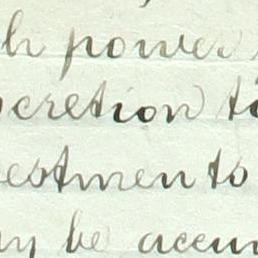 h power
cretion to
estments
ay be accum